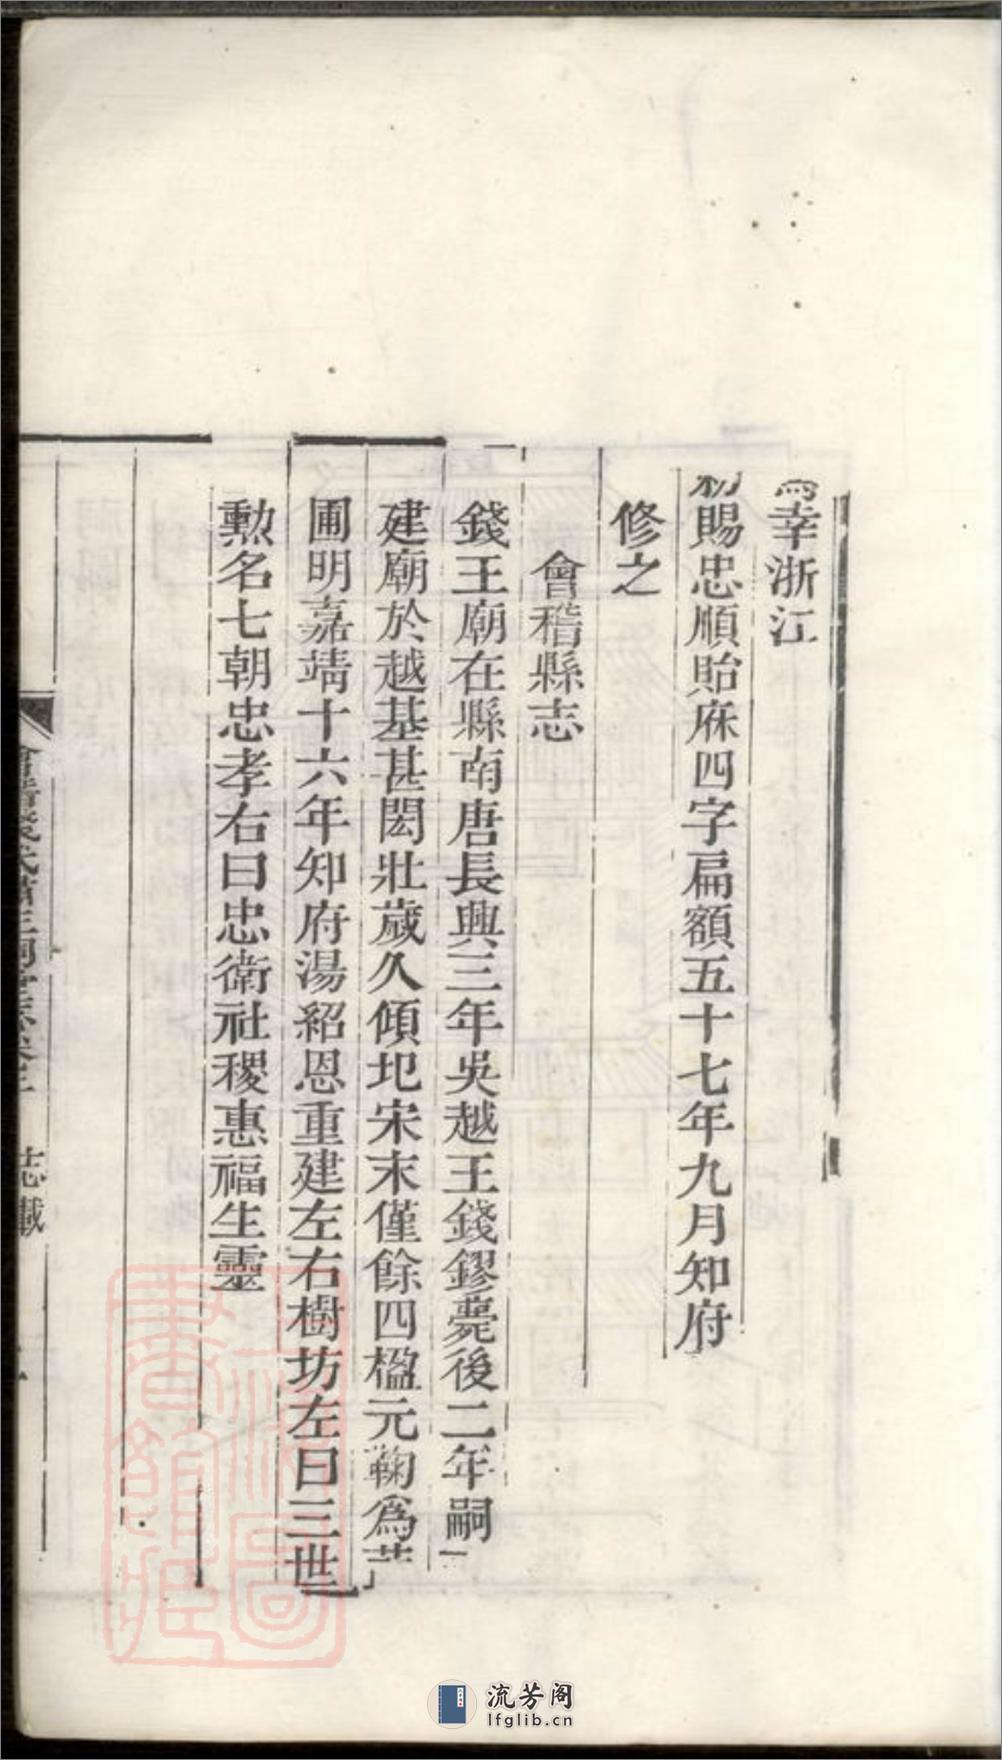 幸浙江
賜忠順貽庥四字扁額五十七年九月知府
修之
會稽縣志
錢王廟在縣南唐長興三年吳越王錢鏐薨後二年嗣
建廟於越基甚閎壯歲久傾圮宋末僅餘四楹元鞠爲
圃明嘉靖十六年知府湯紹恩重建左右樹坊左曰三世
勲名七朝忠孝右曰忠衛社稷惠福生靈
志載
流芳阁
lfglib.cn